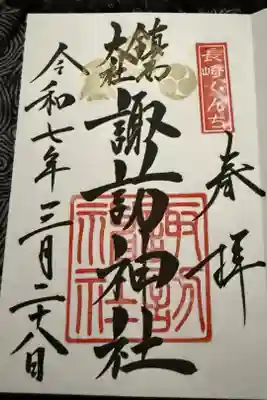 長崎くんち
奉拝
鎮西
大社
諏訪神社
諏訪神社
令和七年三月二十八日